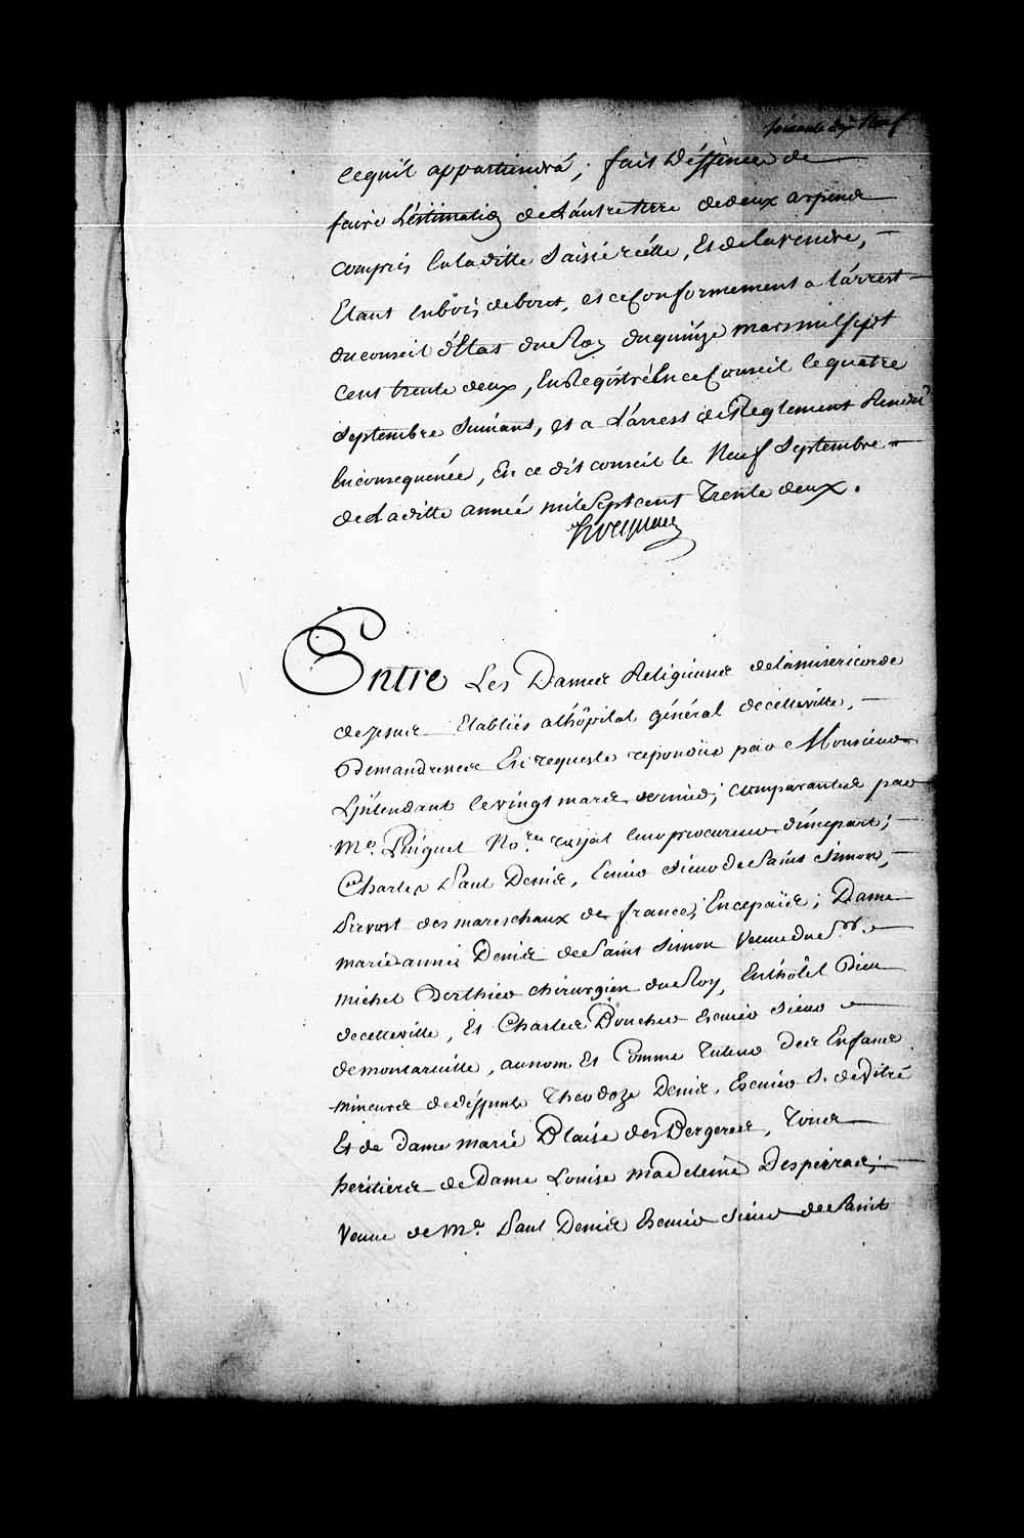 soixante dix Neuf
cequil appartiendrá, fait Déffences de
faire L'éstimatiõn de L'autre terre de deux arpens
compris En la ditte Saisie réélle, Et de la vendre, —
Etant Enbois, de bout, et ce Conformement a l'arrest —
du conseil d'Etat du Roy du quinze mars mil sept
Cent trente deux, EnRegistré En ce Conseil le quatre
Septembre Suivant, Et a L'arrest de Reglement Rendu
En consequence, En ce dit conseil le Neuf Septembre
de La ditte année mile Sept cent Trente deux.
hocquart
Entre Les Dames Religieuses de la misericorde
de Jesus Etablies a l'hôpital général de cette ville, —
Demanderesses En requeste reponduë par Monsieur
L'jntendant le vingt mars dernier; comparantes par
Me. Pinguet No.re royal leur procureur d'unepart; —
Charles Paul Denis, Ecuier Sieur de Saint Simon, —
Prevost des mareschaux de france, En ce païs; Dame
marie anne Denis de Saint Simon Veuve du Sr.
michel Berthier chirurgien du Roy, En l'hôtel Dieu
de cette ville, Et Charles Boucher Ecuier Sieur
de montarville, au nom Et Comme Tuteur Des Enfans
mineurs de déffunt Theodoze Denis, Ecuier S. de Vitré
Et de Dame marie Blaise des Bergeres, Tous
heritiers de Dame Louise madeleine Despeiras, —
Veuve de Me. Paul Denis Ecuier Sieur de Saint